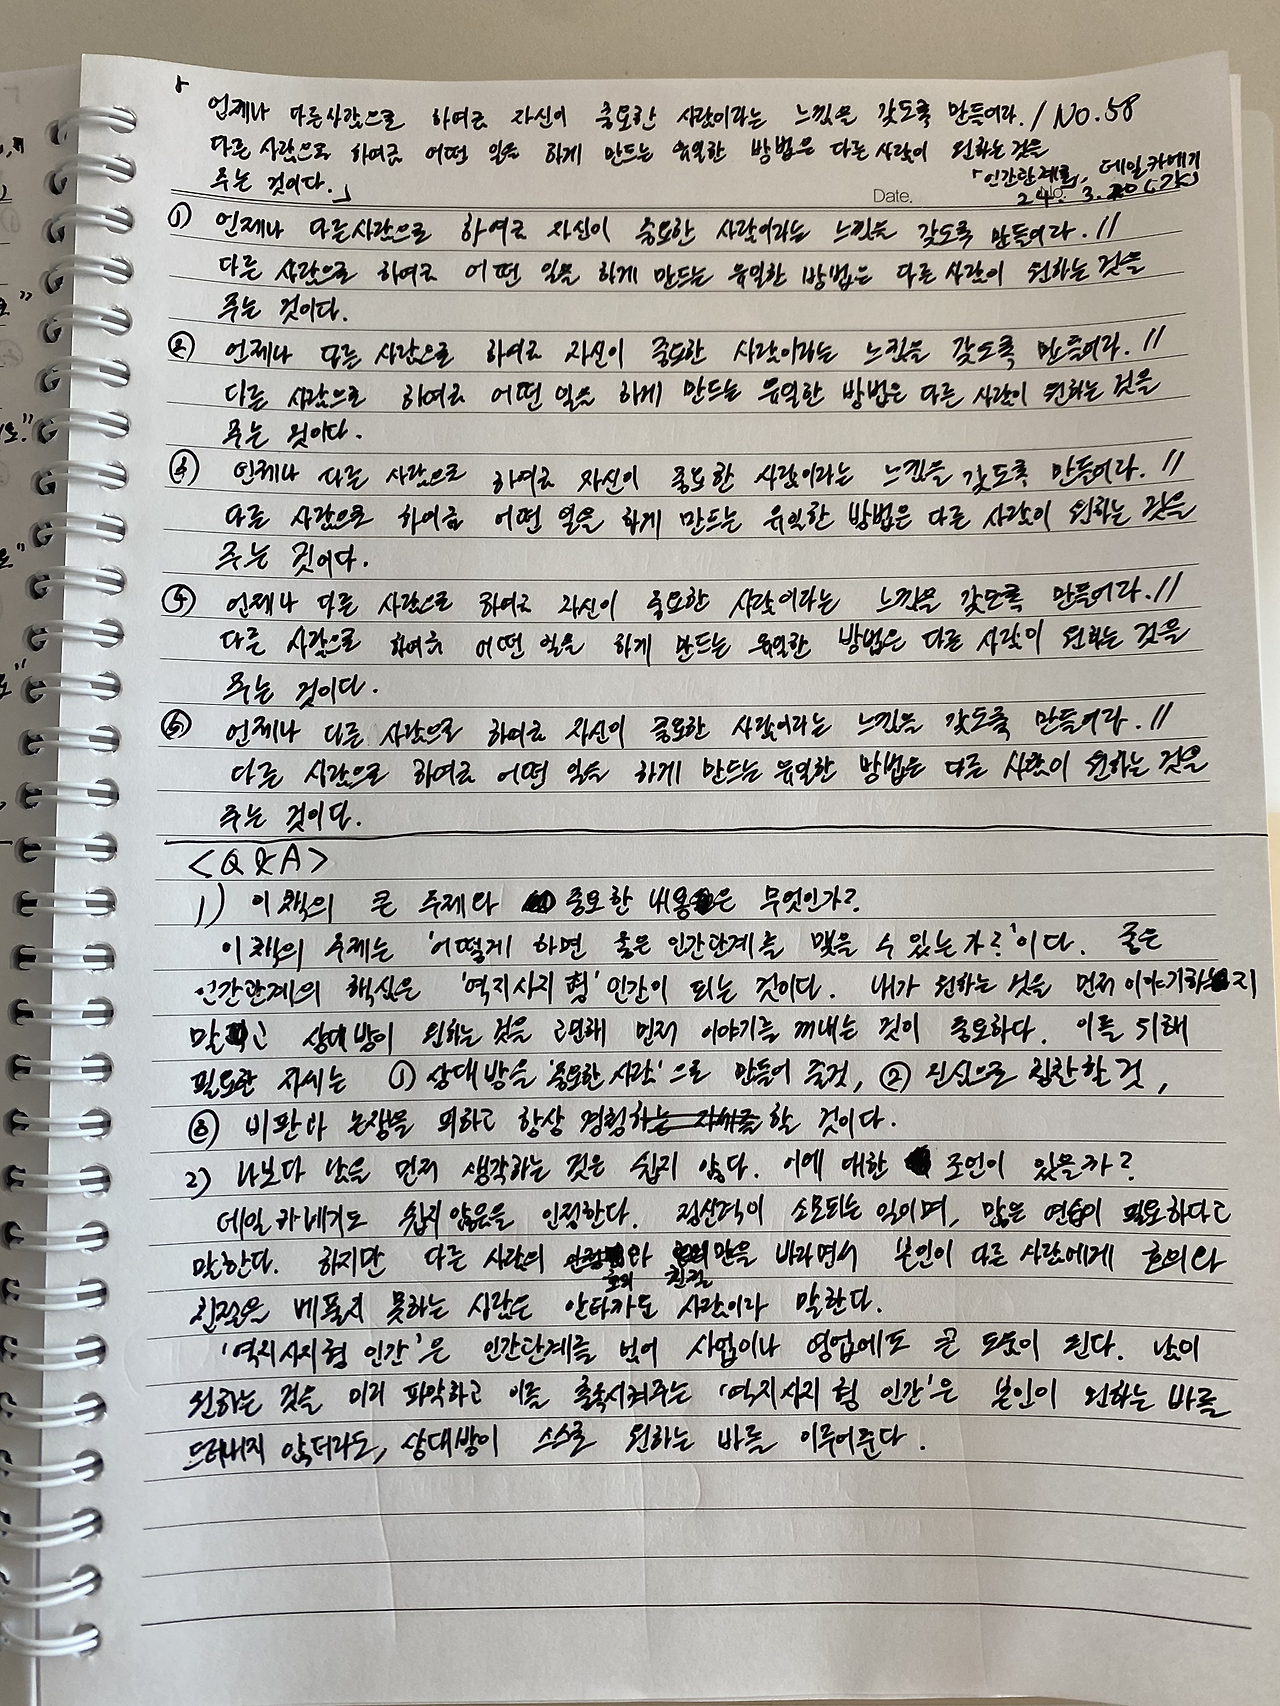 「언제나 다른사람으로 하여금 자신이 중요한 사람이라는 느낌을 갖도록 만들어라. / No.58
다른 사람으로 하여금 어떤 일을 하게 만드는 유일한 방법은 다른 사람이 원하는 것을
주는 것이다.」
「인간관계론」, 데일카네기
Date. 24. 3. 20 (水)
① 언제나 다른사람으로 하여금 자신이 중요한 사람이라는 느낌을 갖도록 만들어라. //
다른 사람으로 하여금 어떤 일을 하게 만드는 유일한 방법은 다른 사람이 원하는 것을
주는 것이다.
② 언제나 다른 사람으로 하여금 자신이 중요한 사람이라는 느낌을 갖도록 만들어라. //
다른 사람으로 하여금 어떤 일을 하게 만드는 유일한 방법은 다른 사람이 원하는 것을
주는 것이다.
③ 언제나 다른 사람으로 하여금 자신이 중요한 사람이라는 느낌을 갖도록 만들어라. //
다른 사람으로 하여금 어떤 일을 하게 만드는 유일한 방법은 다른 사람이 원하는 것을
주는 것이다.
④ 언제나 다른 사람으로 하여금 자신이 중요한 사람이라는 느낌을 갖도록 만들어라. //
다른 사람으로 하여금 어떤 일을 하게 만드는 유일한 방법은 다른 사람이 원하는 것을
주는 것이다.
⑤ 언제나 다른 사람으로 하여금 자신이 중요한 사람이라는 느낌을 갖도록 만들어라. //
다른 사람으로 하여금 어떤 일을 하게 만드는 유일한 방법은 다른 사람이 원하는 것을
주는 것이다.
<Q&A>
1) 이 책의 큰 주제와 중요한 내용은 무엇인가?
이 책의 주제는 '어떻게 하면 좋은 인간관계를 맺을 수 있는가?'이다. 좋은
인간관계의 핵심은 '역지사지 형' 인간이 되는 것이다. 내가 원하는 것을 먼저 이야기하지
말고 상대방이 원하는 것을 고민해 먼저 이야기를 꺼내는 것이 중요하다. 이를 위해
필요한 자세는 ① 상대방을 '중요한 사람'으로 만들어 줄것, ② 진심으로 칭찬할 것,
③ 비판과 논쟁을 피하고 항상 경청할 것이다.
2) 나보다 남을 먼저 생각하는 것은 쉽지 않다. 이에 대한 조언이 있을까?
데일 카네기도 쉽지 않음을 인정한다. 정신력이 소모되는 일이며, 많은 연습이 필요하다고
말한다. 하지만 다른 사람의 호의와 친절만을 바라면서 본인이 다른 사람에게 호의와
친절은 베풀지 못하는 사람은 안타까운 사람이라 말한다.
'역지사지형 인간'은 인간관계를 넘어 사업이나 영업에도 큰 도움이 된다. 남이
원하는 것을 미리 파악하고 이를 충족시켜주는 '역지사지 형 인간'은 본인이 원하는 바를
드러내지 않더라도, 상대방이 스스로 원하는 바를 이루어준다.